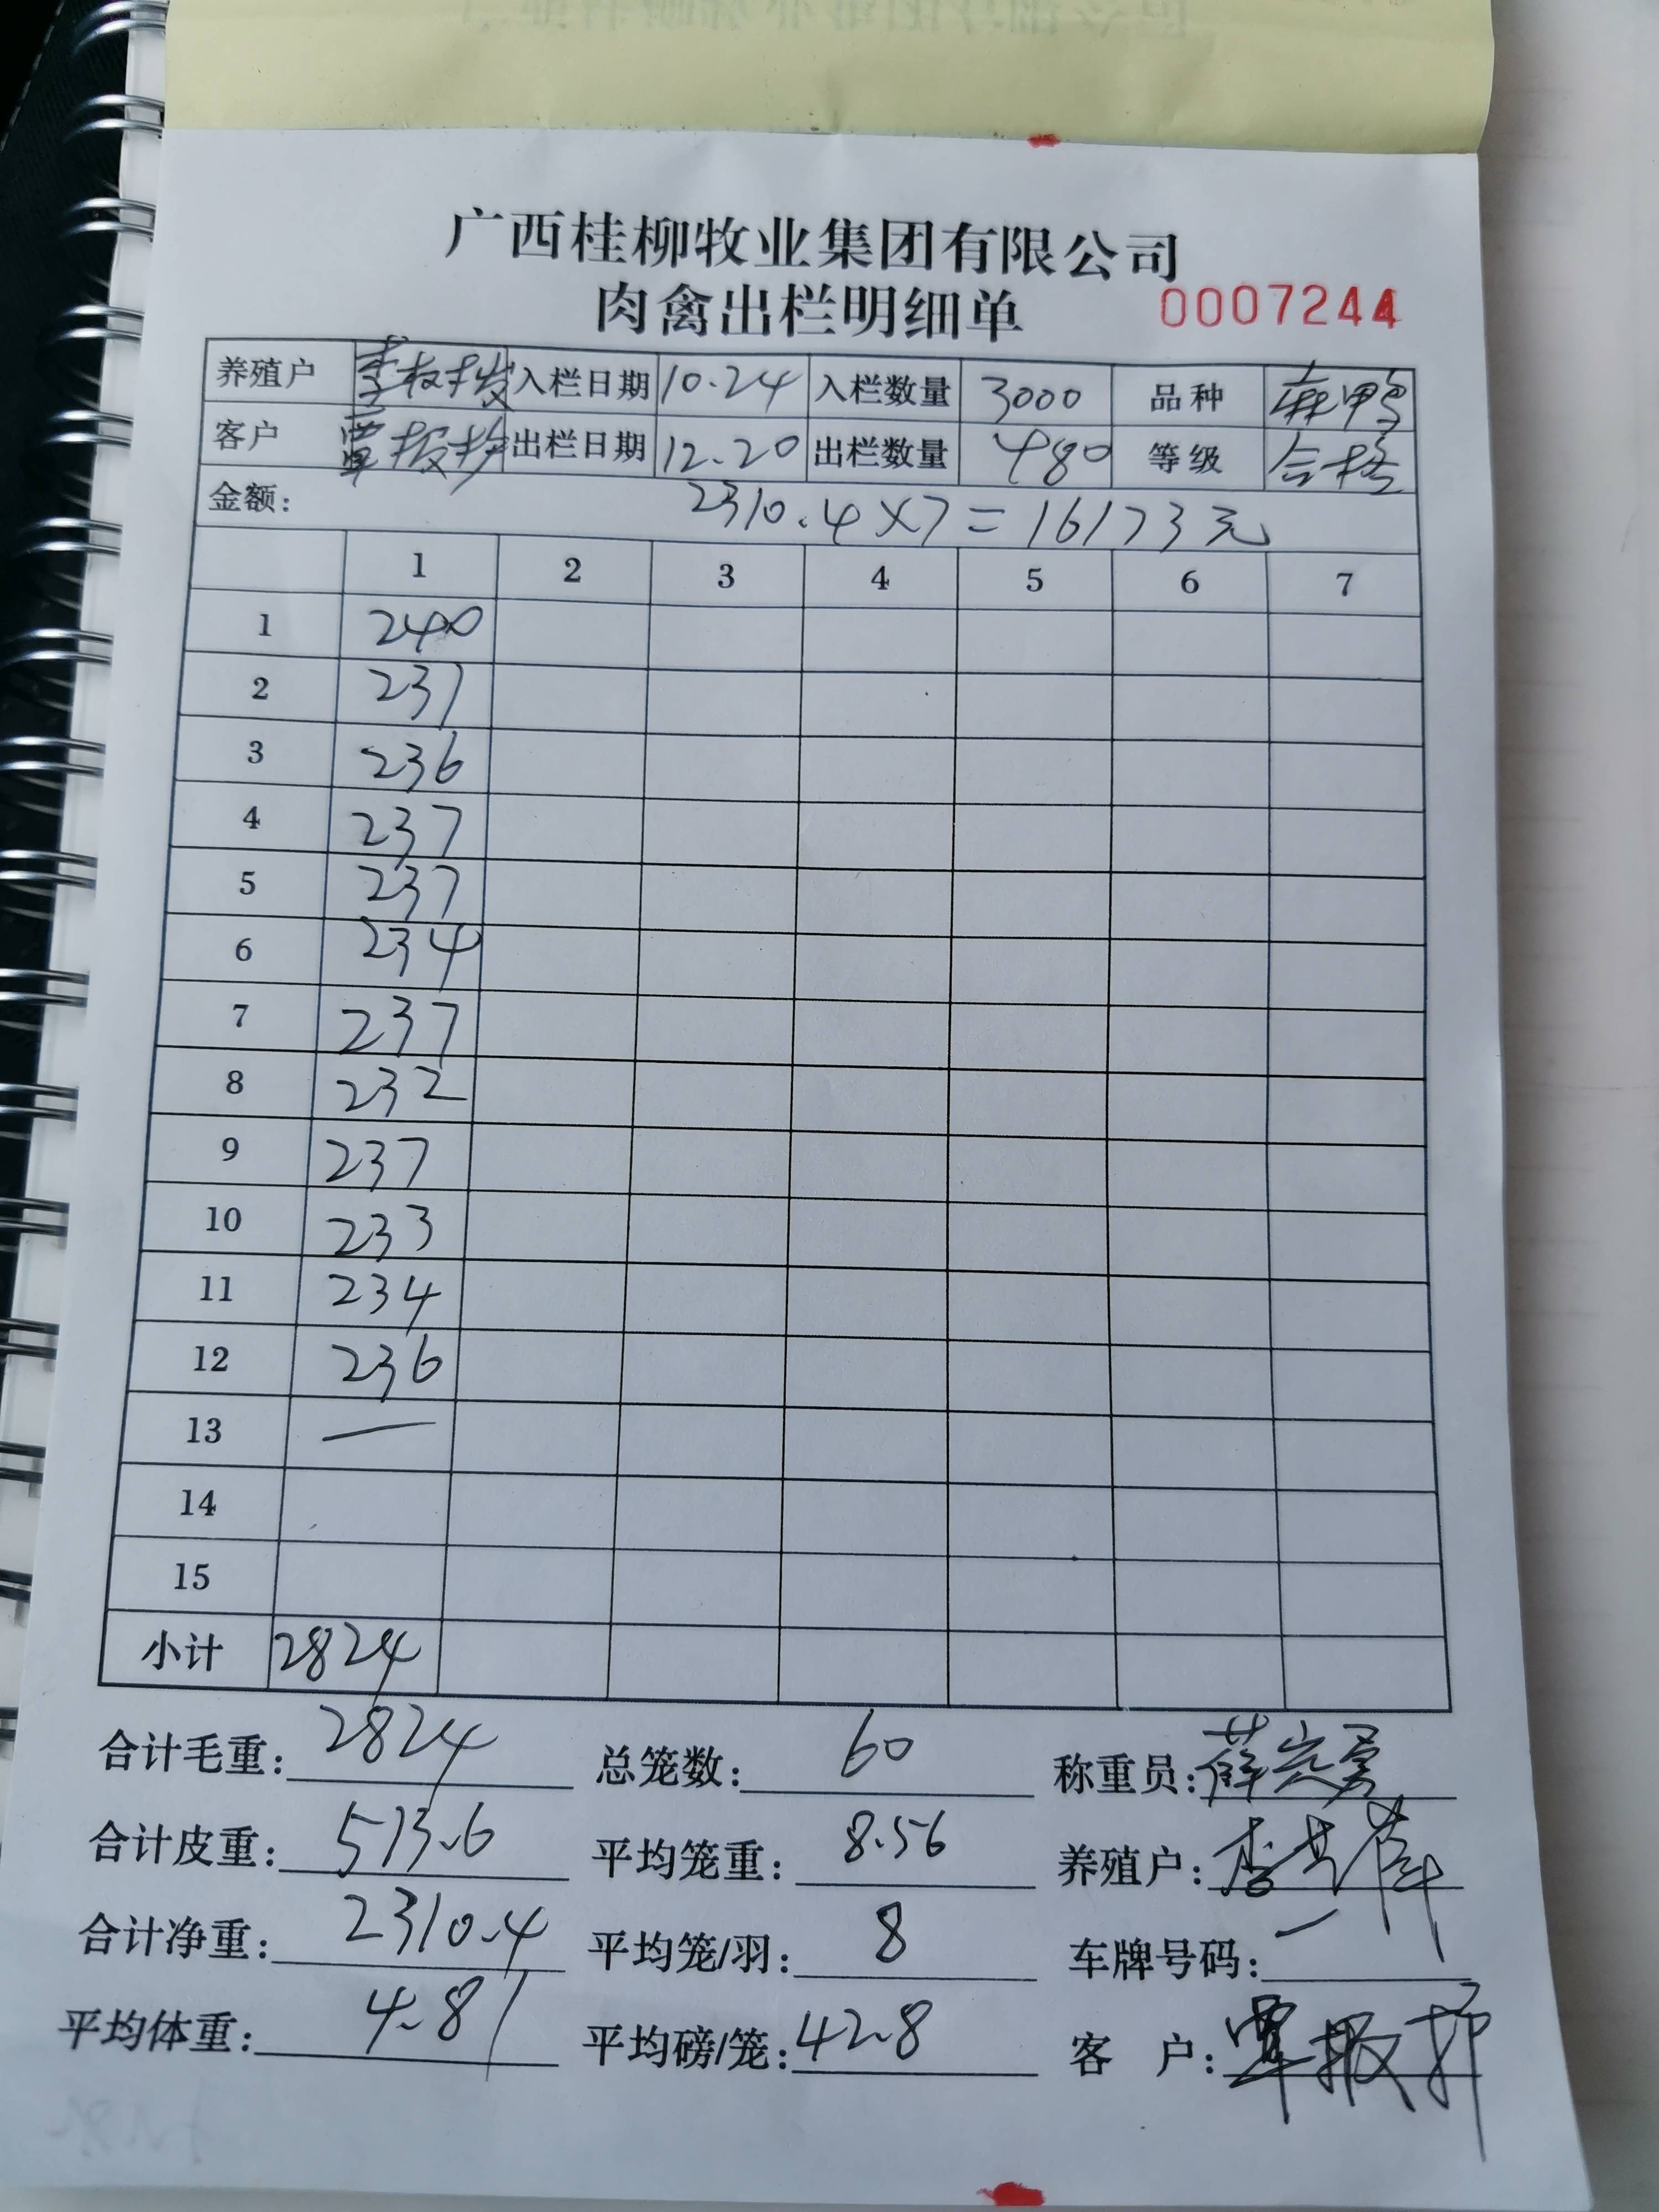 广西桂柳牧业集团有限公司
肉禽出栏明细单 0007244
养殖户 李 入栏日期 10.24 入栏数量 3000 品种 麻鸭
客户 覃报 出栏日期 12.20 出栏数量 480 等级 合格
金额: 2310.4×7=16173元
1 2 3 4 5 6 7
1 240
2 231
3 236
4 237
5 237
6 234
7 237
8 232
9 237
10 233
11 234
12 236
13 —
14
15
小计 2824
合计毛重: 2824 总笼数: 60 称重员: 薛
合计皮重: 513.6 平均笼重: 8.56 养殖户: 李
合计净重: 2310.4 平均笼/羽: 8 车牌号码: —
平均体重: 4.81 平均磅/笼: 42.8 客 户: 覃报